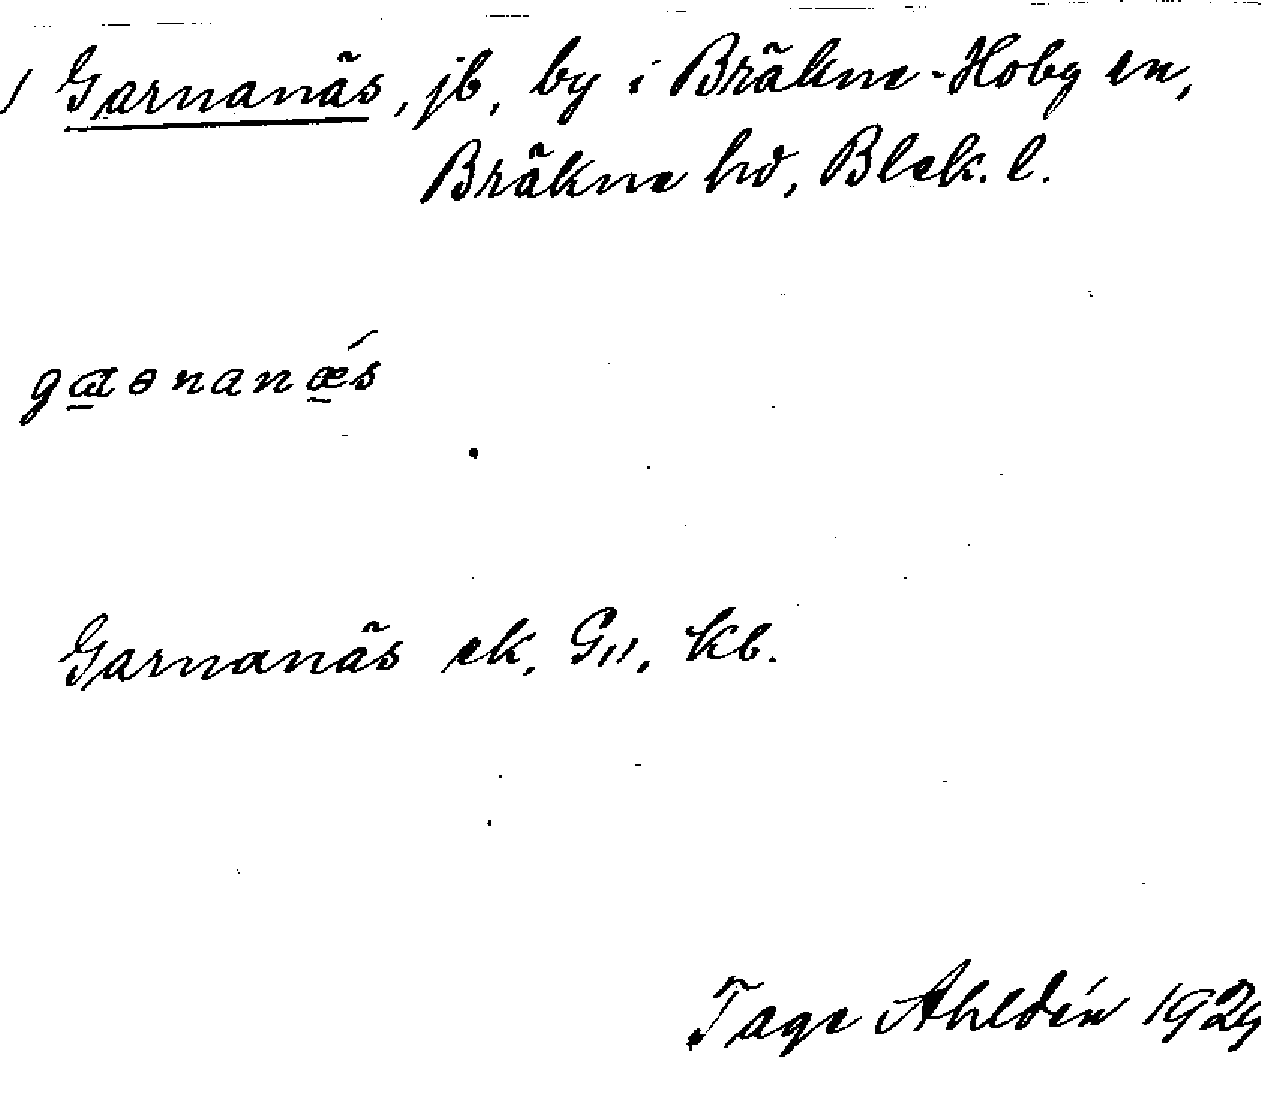 Garnanäs, jb, by i Bräkne-Hoby sn,
Bräkne hd, Blek. l.
gɑənanǽs
Garnanäs ek. G11, kb.
Tage Ahldén 1929